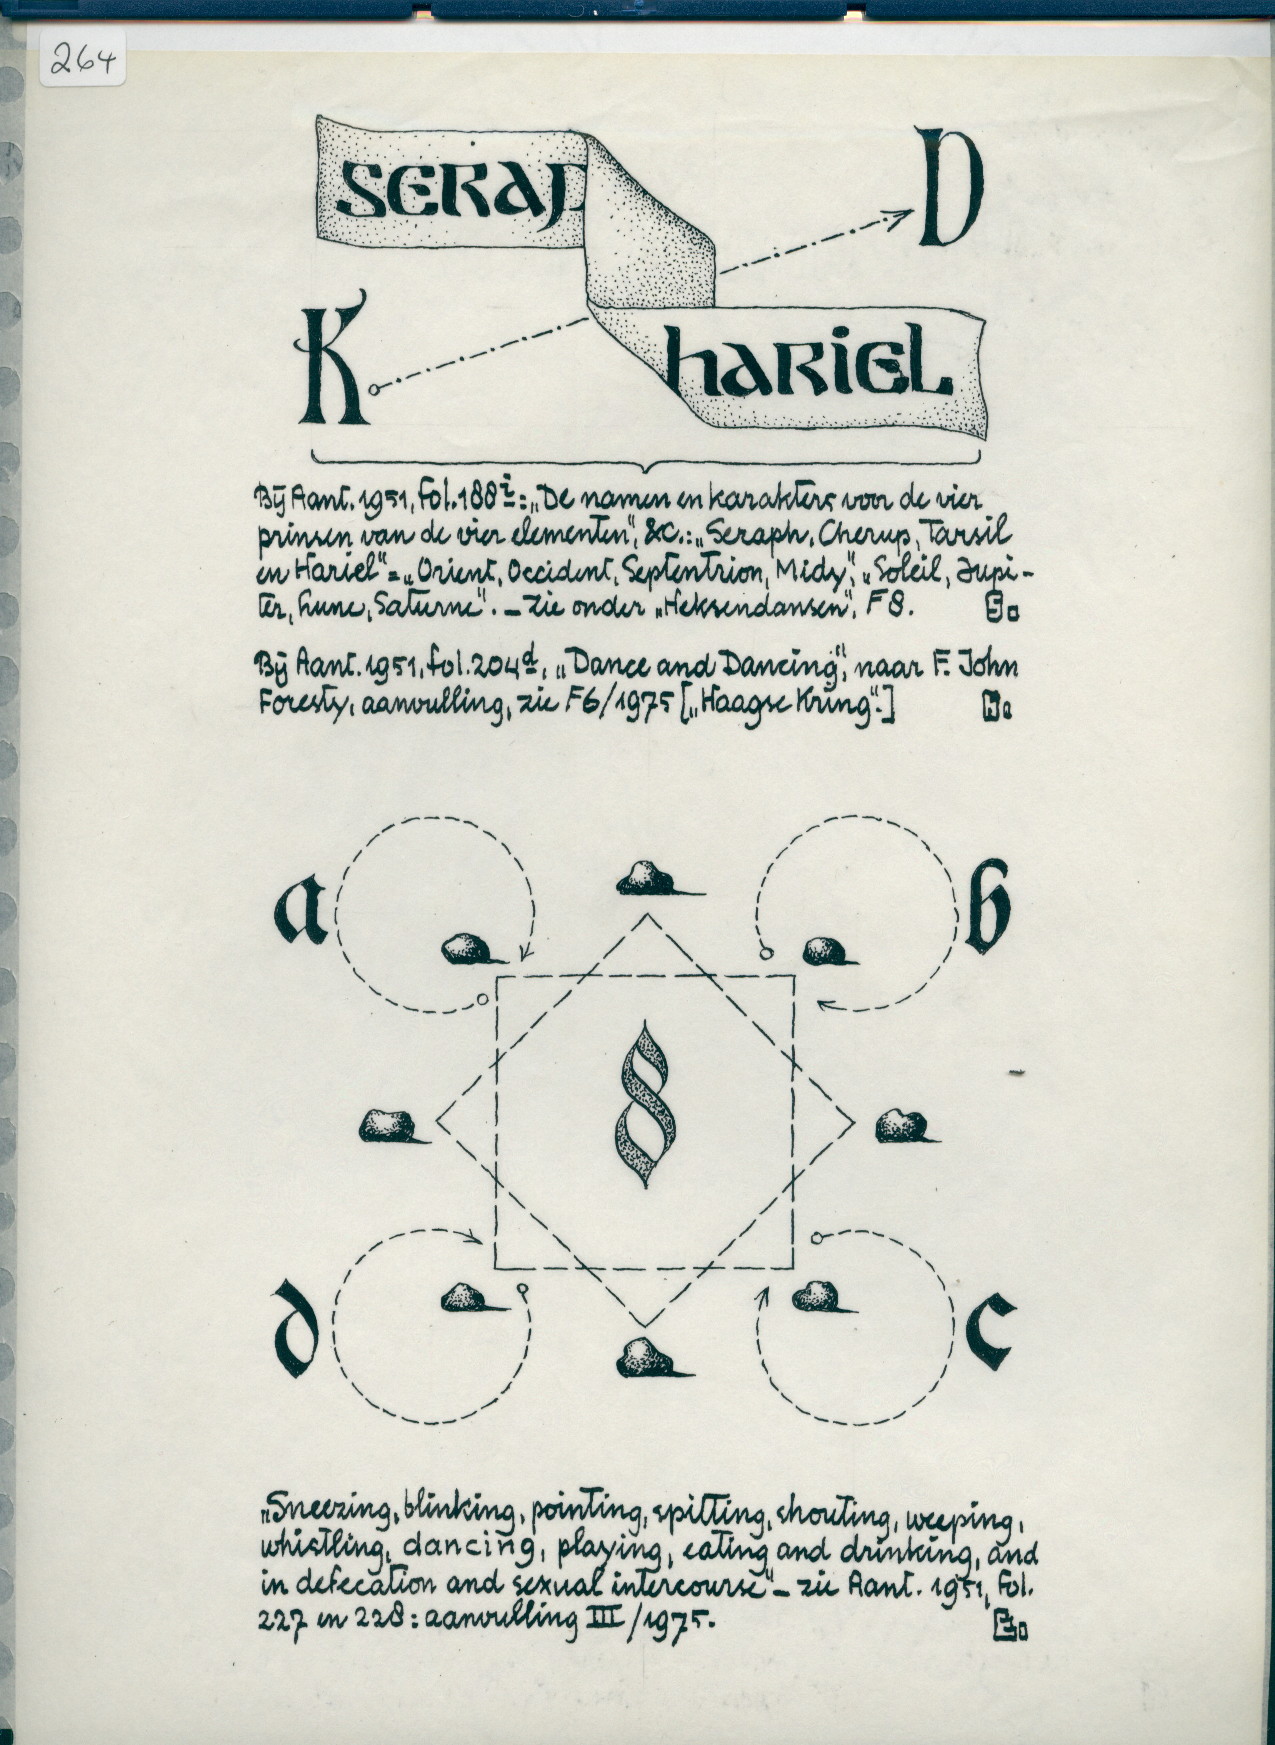 264
SERAP
D
K
HARIEL
Bij Aant. 1951, fol. 188i: „De namen en karakters voor de vier
prinsen van de vier elementen", &c.: „Seraph, Cherup, Tarsil
en Hariel" = „Orient, Occident, Septentrion, Midy", „Soleil, Jupi-
ter, Lune, Saturne". – Zie onder „Heksendansen", F8.
Bij Aant. 1951, fol. 204d, „Dance and Dancing", naar F. John
Foresty, aanvulling, zie F6/1975 [„Haagse Kring".]
a
b
d
c
„Sneezing, blinking, pointing, spitting, shouting, weeping,
whistling, dancing, playing, eating and drinking, and
in defecation and sexual intercourse" – zie Aant. 1951, fol.
227 en 228: aanvulling III/1975.